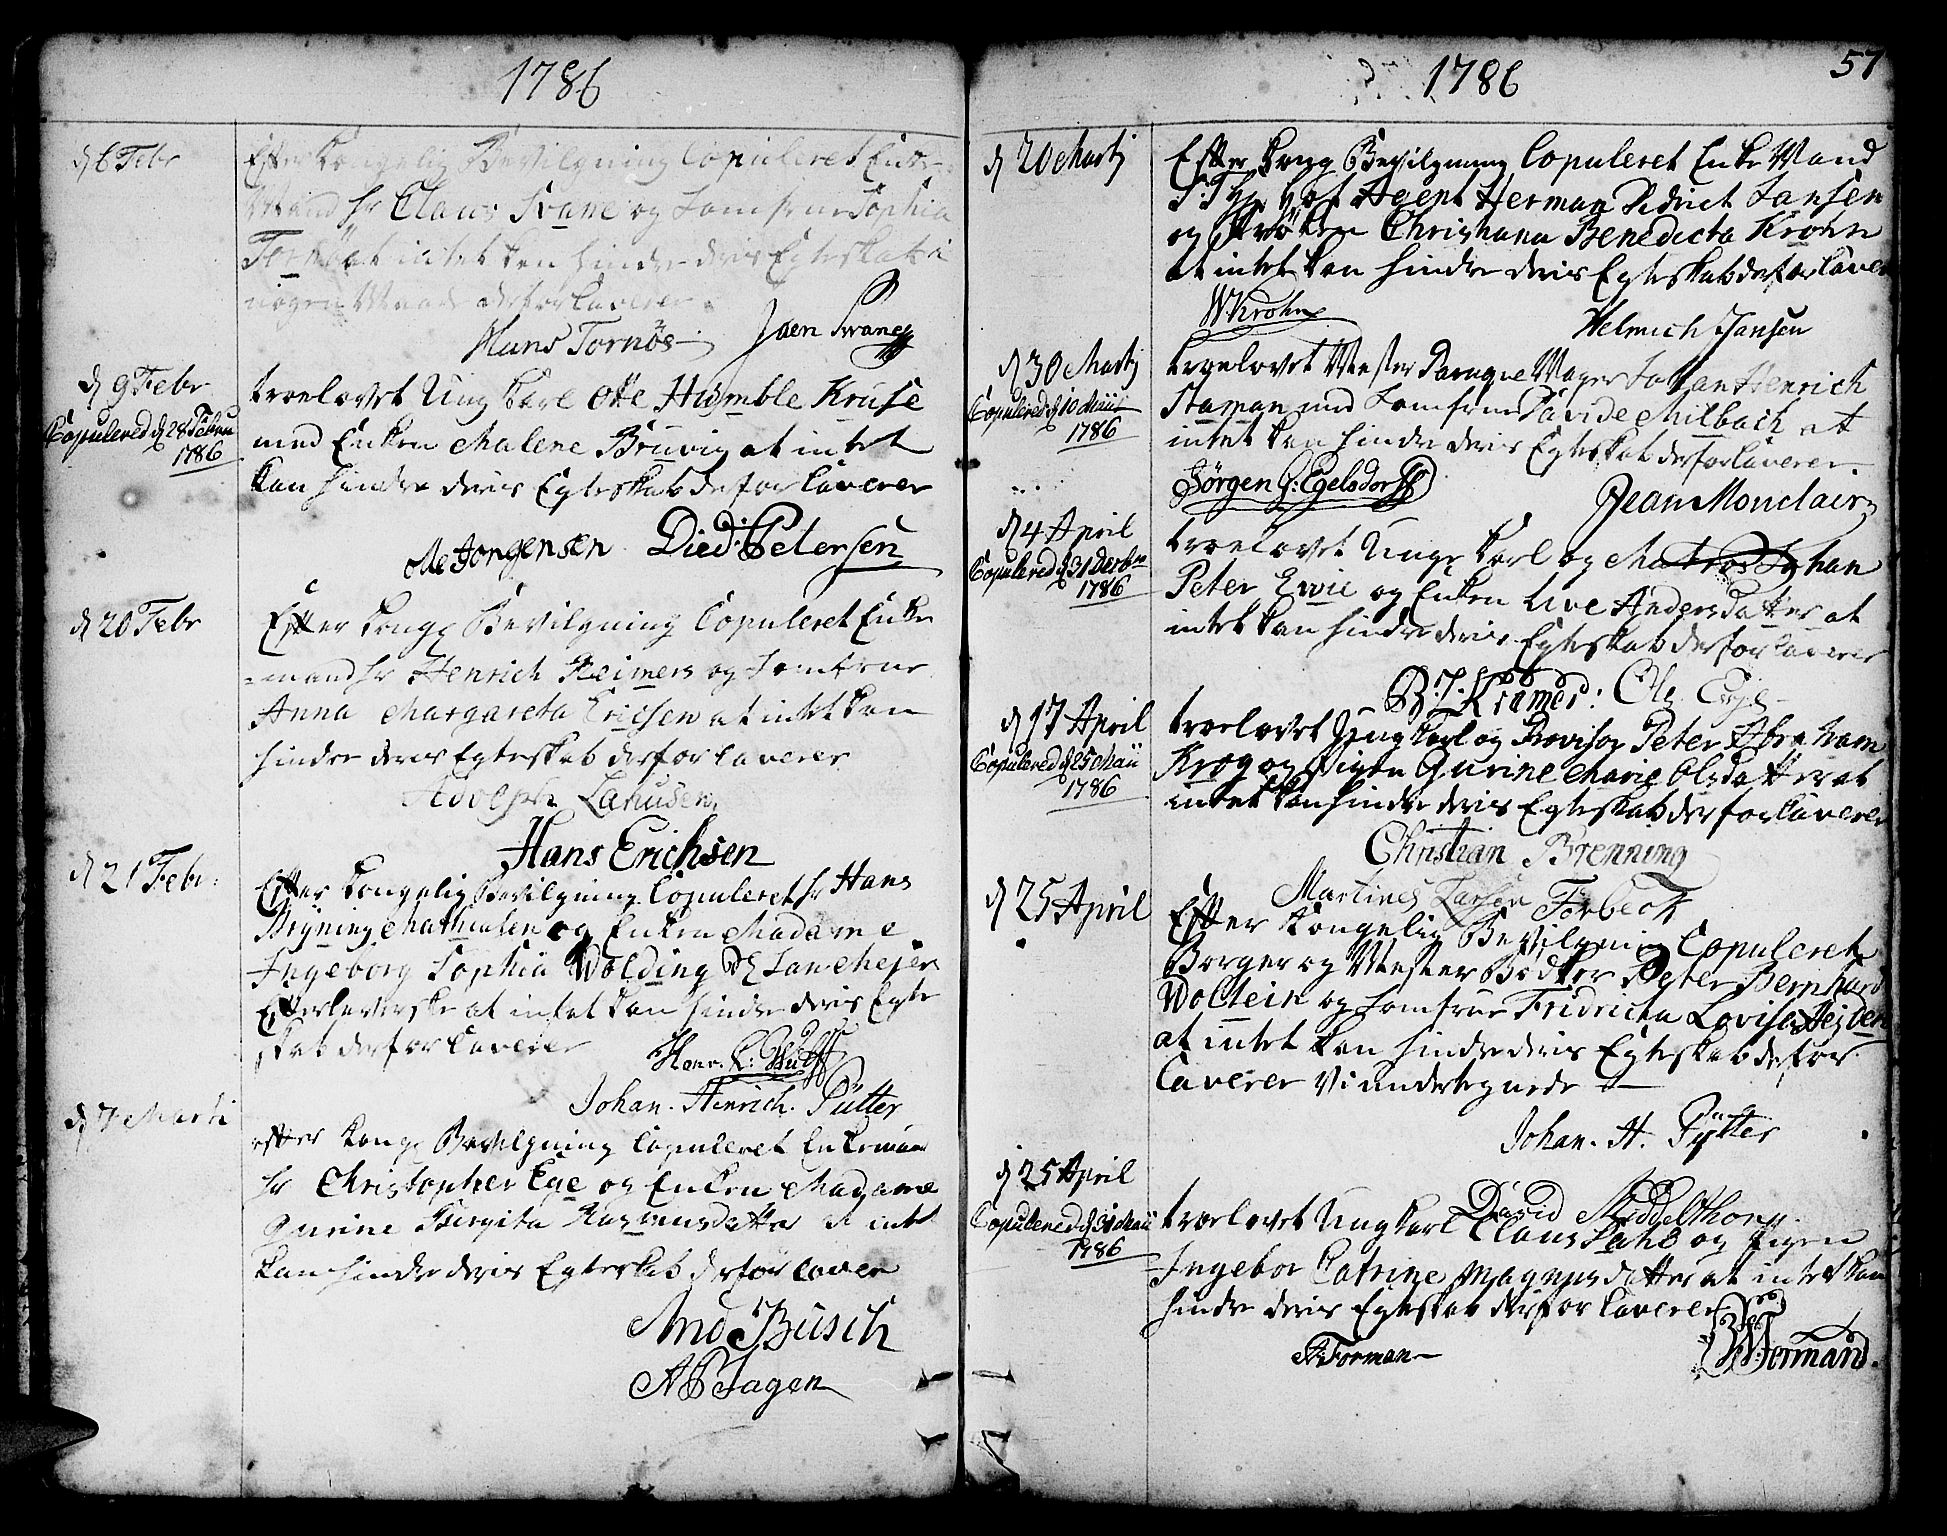 1786
d 6 Febr
Efter Kongelig Bevilgning Copuleret Enke
Mand Hr Claus Svane og Jomfrue Sophia
Tornöe at intet kan hindre deris Egteskab i
nogen Maade derfor Caverer
Hans Tornöe Jaen Svane
d 9 Febr
Copulered d 28 Febru
1786
troelovet Ung Karl Ole Humble Kruse
med Enken Malene Bruvig at intet
kan hindre deris Egteskab derfor Caverer
Ole Jörgensen Died: Petersen
d 20 Febr
Efter Kong Bevilgning Copuleret Enke
mand Hr Henrich Reimers og Jomfrue
Anna Margareta Ericsen at intet kan
hindre deris Egteskab derfor Caverer
Adolph Lahusen
Hans Erichsen
d 21 Febr:
Efter Kongelig Bevilgning Copuleret Hr Hans
Bryning Mathiesen og Enken Madame
Ingeborg Sophia Wolding Jan Mejer
Efterleverske at intet kan hindre deris Egte
skab derfor Caverer
Johan. Hinrich. Pütter
d 7 Marti
efter Kong Bevilgning Copuleret Enkeman
Hr Christopher Ege og Enken Madame
Gurine Bergita Rasmusdatter at intet
kan hindre deris Egteskab derfor Caver
And Büsch
A P Fagen
1786
57
d 20 Martj
Efter Kong Bevilgning Copuleret Enke Mand
Agent Herman Didrich Jansen
og Fröken Christiana Benedicta Krohn
at intet kan hindre deris Egteskab derfor Caver
W Krohn Helmich Jansen
d 30 Martj
Copulered d 10 Maii
1786
troelovet Mester Paruque Mager Johan Henrich
Staman med Jomfrue Davide Milbach at
intet kan hindre deris Egteskab derfor Caverer
Jörgen G: Egelsdorff Jean Monclair
d 4 April
Copulered d 31 Decbr
1786
troelovet Unge Karl og Matros Johan
Peter Ewie og Enken Live Andersdatter at
intet kan hindre deris Egteskab derfor Caverer
B. J. Kramer: Ole Eye
d 17 April
Copulered d 25 Maii
1786
troelovet Ung Karl og Provisor Peter Abraham
Krog og Pigen Gurine Marie Olsdatter at
intet kan hindre deris Egteskab derfor Caverer
Christian Brenning
Martines Larsen Forbeck
d 25 April
Efter Kongelig Bevilgning Copuleret
Borger og Mester Bödker Peter Bernhard
Woltein og Jomfrue Fridricka Lovisa Heiden
at intet kan hindre deris Egteskab derfor
Caverer Vi undertegnede
Johan. H. Pütter
David Middelthon
d 25 April
Copulered d 31 Maii
1786
troelovet Ung Karl Claus Pahe og Pigen
Ingebor Catrine Magnusdatter at intet kan
hindre deris Egteskab derfor Caverer
A: Forman W: Formand